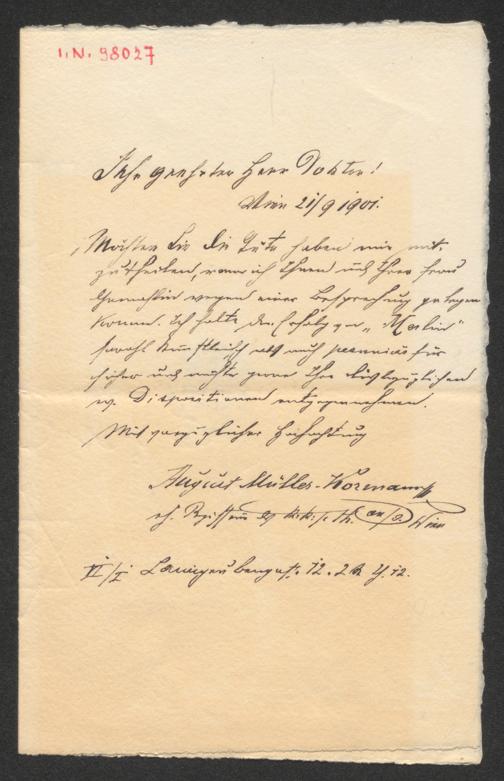 I.N. 98027
Sehr geehrter Herr Doktor!
Wien 21/9 1901.
Möchten Sie die Güte haben mir mit-
zutheilen, wann ich Ihnen und Ihrer Frau
Gemahlin wegen einer Besprechung gelegen
komme. Ich halte den Erfolg von „Merlin“
sowohl künstlerisch als auch pecuniär für
sicher und möchte gerne Ihre diesbezüglichen
w. Dispositionen entgegennehmen.
Mit vorzüglicher Hochachtung
August Müller-Kormann
Regisseur k.k. Wien
12. 2